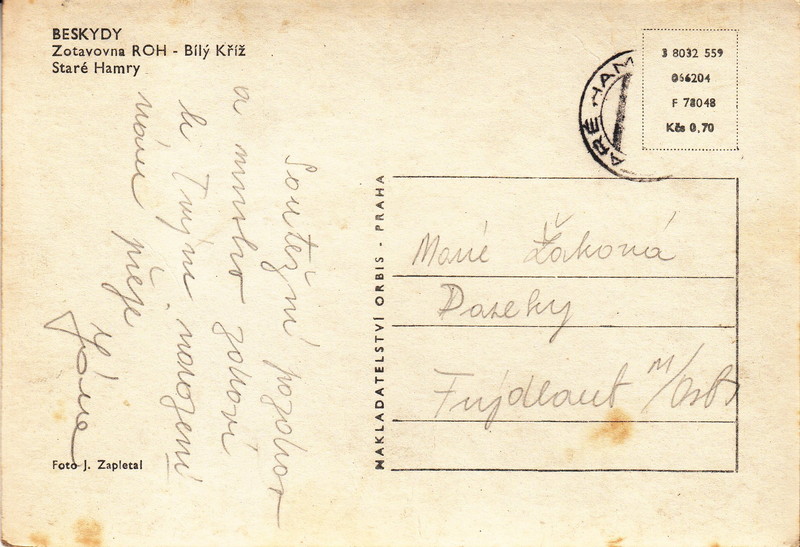 BESKYDY
Zotavovna ROH - Bílý Kříž
Staré Hamry
3 8032 559
066204
F 78048
Kčs 0,70
ARÉ HAM
Soutežní pozdrav
a mnoho zdraví
k Tvým narozením
přeje
NAKLADATELSTVÍ ORBIS - PRAHA
Marie Žáková
Paseky
Frýdlant n/Ostr
Foto J. Zapletal